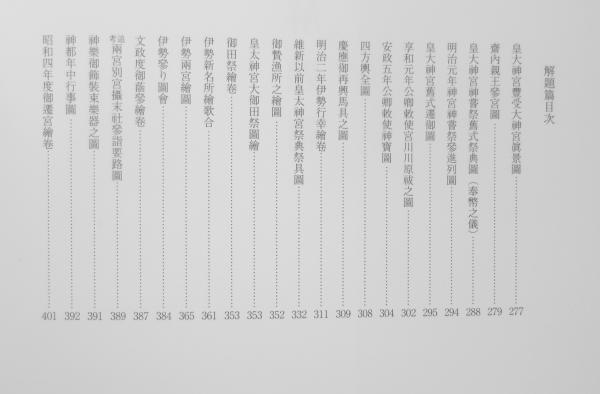 解題篇目次
皇大神宮豐受大神宮眞景圖……277
齋內親王參宮圖……279
皇大神宮神嘗祭舊式祭典圖(奉幣之儀)……288
明治元年神宮神嘗祭參進列圖……294
皇大神宮舊式遷御圖……295
享和元年公卿敕使宮川川原祓之圖……302
安政五年公卿敕使神寶圖……304
四方輿全圖……308
慶應御再興馬具之圖……309
明治二年伊勢行幸繪卷……311
維新以前皇太神宮祭典祭具圖……332
御贄漁所之繪圖……352
皇太神宮大御田祭圖繪……353
御田祭繪卷……353
伊勢新名所繪歌合……361
伊勢兩宮繪圖……365
伊勢參り圖會……384
文政度御蔭參繪卷……387
追考兩宮別宮攝末社參詣要路圖……389
神樂御飾裝束樂器之圖……391
神都年中行事圖……392
昭和四年度御遷宮繪卷……401